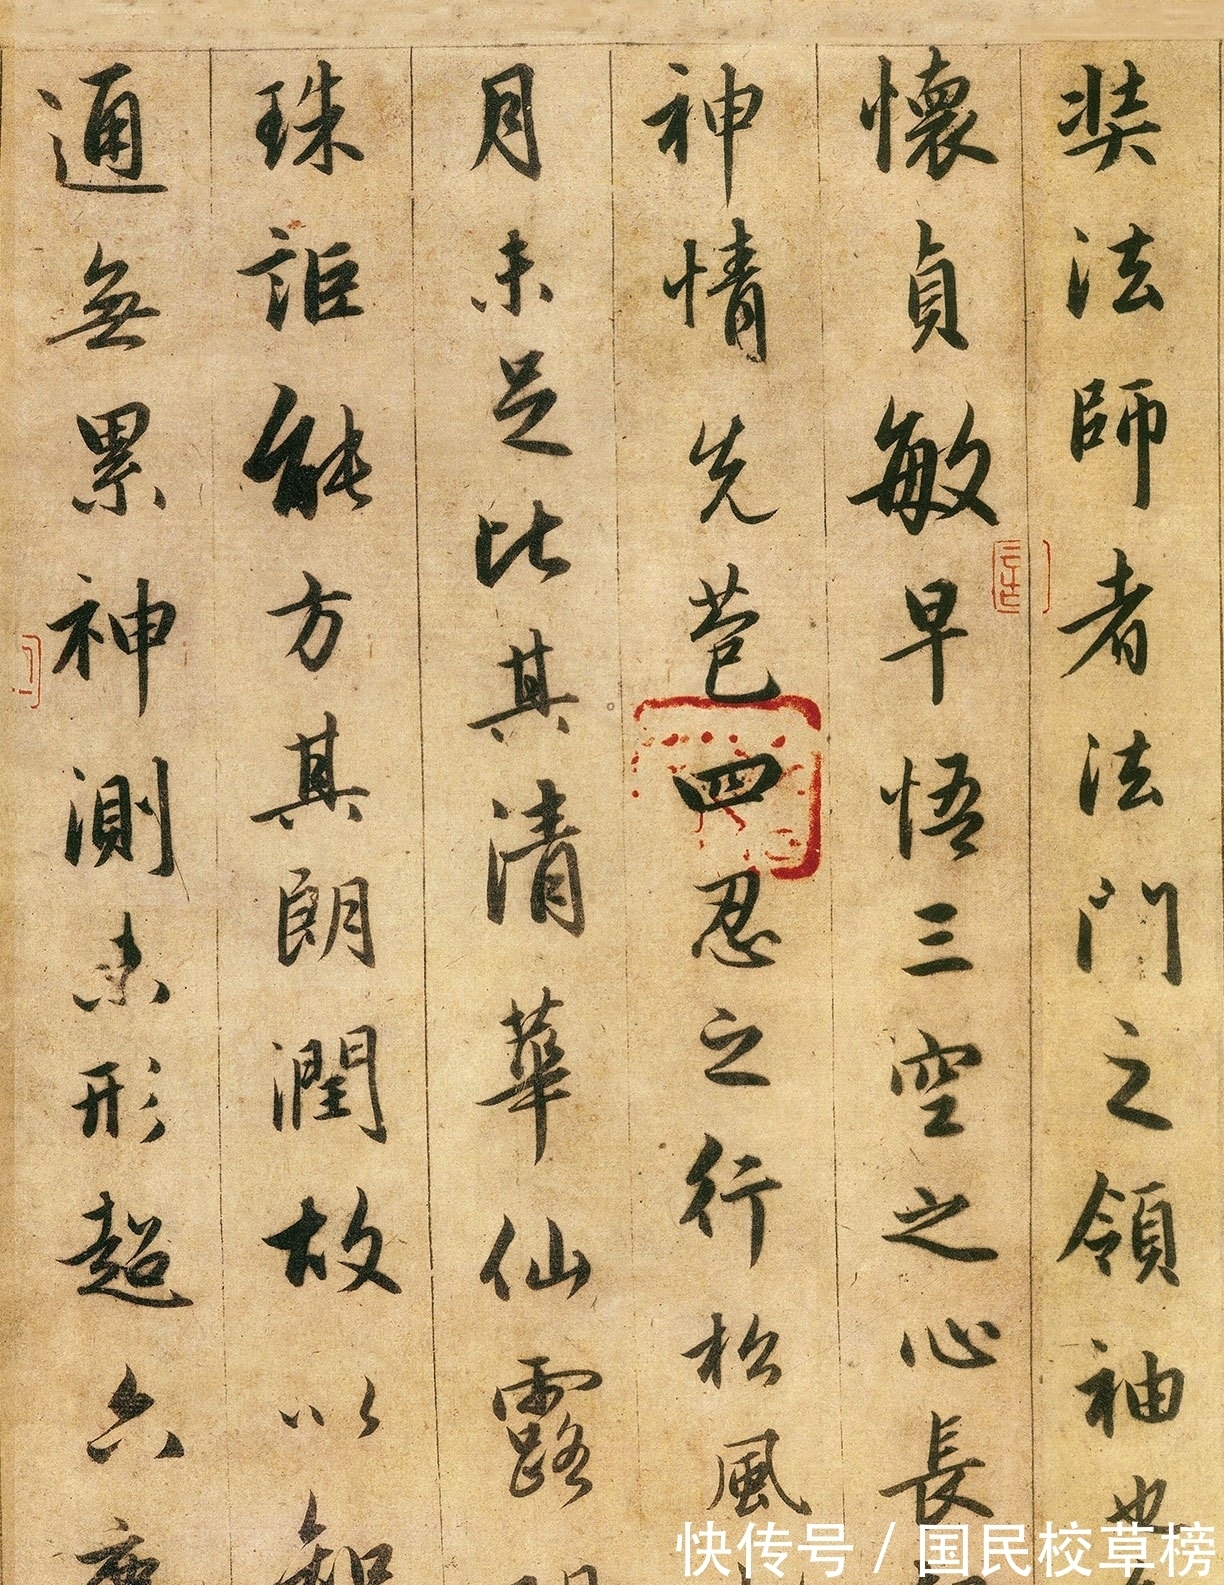 奘法師者法門之領袖也
懷貞敏早悟三空之心長
神情先苞四忍之行松風
月未足比其清華仙露明
珠詎能方其朗潤故以智
通無累神測未形超六塵
快传号 / 国民校草榜